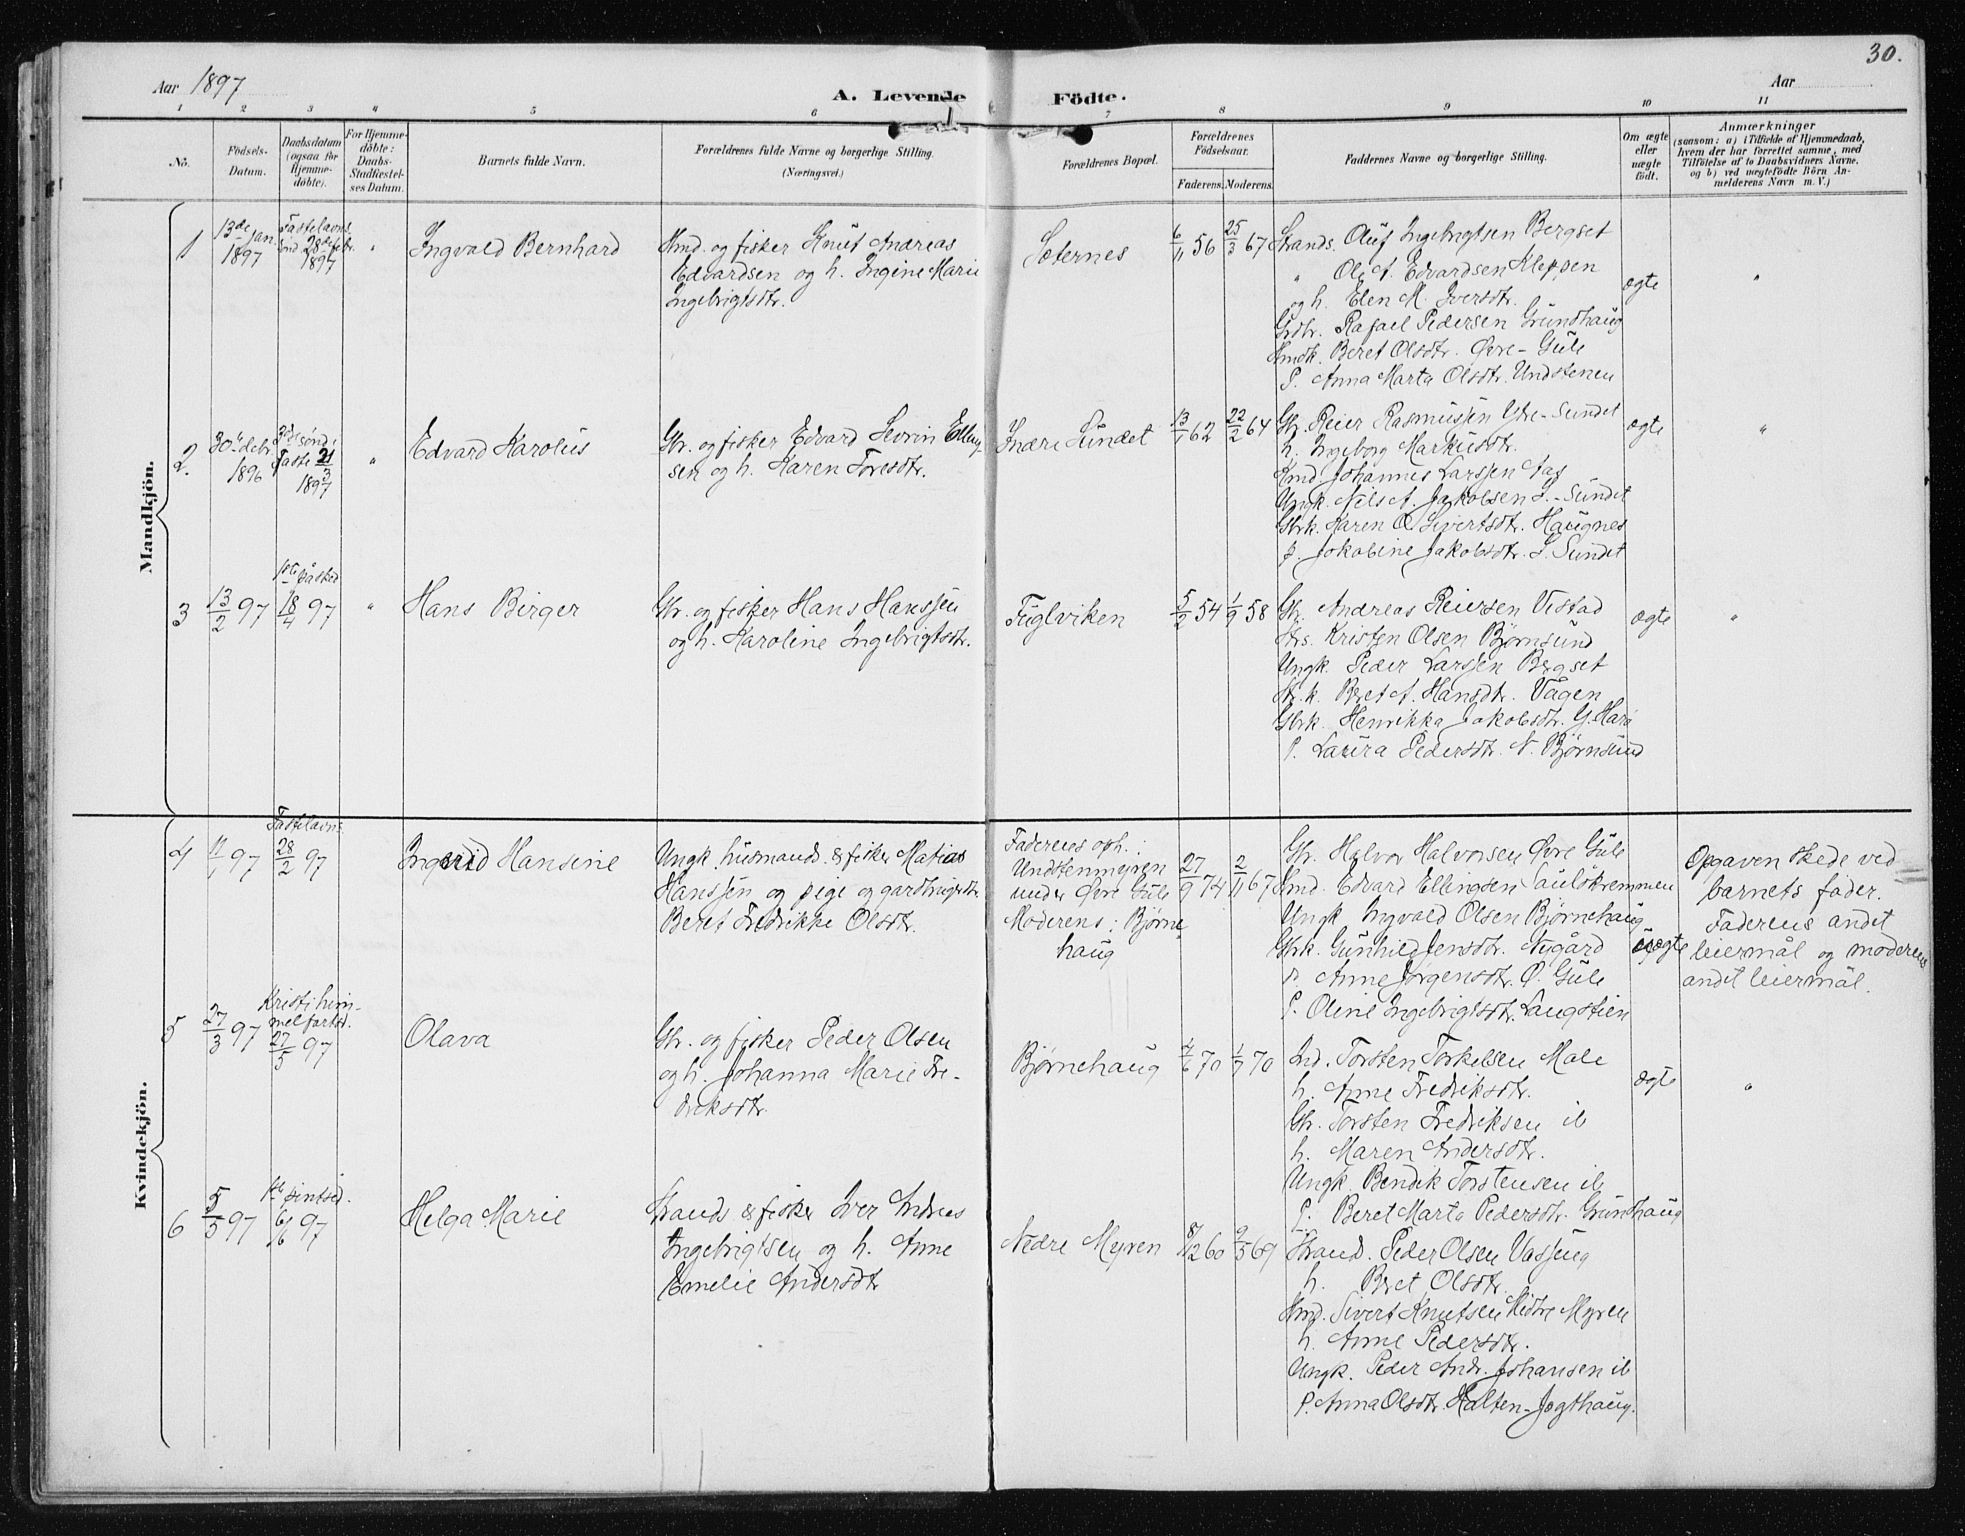 30.
Aar 1897
A. Levende Födte.
Aar
1 2 3 " 5 6 7 8 9 10 11
No.
Födsels-Datum.
Daabsdatum (ogsaa for Hjemmedöbte).
For Hjemmedöbte: Daabs-Stadfæstelses Datum.
Barnets fulde Navn.
Forældrenes fulde Navne og borgerlige Stilling.
(Næringsvei.)
Forældrenes Bopæl.
Forældrenes Födselsaar.
Faderens. Moderens.
Faddernes Navne og borgerlige Stilling.
Om ægte eller uægte födt.
Anmærkninger
(saasom: a) i Tilfælde af Hjemmedaab,
hvem der har forrettet samme, med
Tilföielse af to Daabsvidners Navne,
og b) ved uægtefödte Börn Anmelderens Navn m. V.)
Mandkjön.
1
13de Jan. 1897
Fastelavns sönd. 28de febr. 1897
"
Ingvald Bernhard
Hmd. og fisker Knut Andreas
Edvardsen og h. Ingine Marie
Ingebrigtsdtr.
Sæternes
6/11 56
25/3 67
Strands. Oluf Ingebrigtsen Bergset
" Ole A. Edvardsen Kleppen
og h. Elen M. Iversdtr.
Grdbr. Rafael Pedersen Grundhaug
Hmdk. Beret Olsdtr. Øvre-Gule
P. Anna Marta Olsdtr. Undstenen
ægte
"
2.
30te debr 1896
3die sönd i Faste 21/3 1897
"
Edvard Karolus
Gbr. og fisker Edvard Sevrin Elling-
sen og h. Karen Toresdtr.
Indre Sundet
13/1 62
22/2 64
Gbr. Reier Rasmussen Ytre-Sundet
h. Ingeborg Markusdtr.
Kmd Johannes Larssen Aas
Ungk. Nils A. Jakobsen I.-Sundet
Gbrk. Karen O Sivertsdtr. Haugnes
p. Jakobine Jakobsdtr. I. Sundet
ægte
"
3
13/2 97
1ste påsked 18/4 97
"
Hans Birger
Gbr. og fisker Hans Hanssen
og h. Karoline Ingebrigtsdtr.
Fuglviken
5/2 54
1/9 58
Gbr. Andreas Reiersen Vestad
Strs. Kristen Olsen Bjørnsund
Ungk. Peder Larssen Bergset
Str.k. Beret A. Hansdtr. Vågen
Gbrk. Henrikka Jakobsdtr. Y. Harø
P. Laura Pedersdtr. N. Bjørnsund
ægte
"
Kvindekjön.
4
11/1 97
Fastelavns. 28/2 97
Ingerid Hansine
Ungk. husmands. & fisker Matias
Hanssen og pige og gardbrugerdtr.
Beret Fredrikke Olsdtr.
Faderens oph.:
Undstenmyren
under Øvre Gule
Moderens: Bjørne
haug
27/9 74
2/11 67
Gbr. Halvor Halvorsen Øvre Gule
Hmd. Edvard Ellingsen Gaulskremmen
Ungk. Ingvald Olsen Bjørnehaug
Gbrk. Gunhild Jensdtr. Nygård
p. Anne Jørgensdtr. Ø. Gule
P. Oline Ingebrigtsdtr. Langstien
uægte
Opgaven skede ved
barnets fader.
Faderens andet
leiermål og moderens
andet leiermål.
5
27/3 97
Kristi him-
melfartsd.
27/5 97
Olava
Gbr. og fisker Peder Olsen
og h. Johanna Marie Fre-
driksdtr.
Bjørnehaug
4/6 70
1/7 70
Ind. Torsten Torkelsen Male
h. Anne Fredriksdtr.
Gbr. Torsten Fredriksen ib
h. Maren Andersdtr.
Ungk. Bendik Torstensen ib
P. Beret Marta Pedersdtr. Grundhaug
ægte
"
6
5/5 97
1ste pintsed.
6/6 97
Helga Marie
Strands & fisker Iver Andreas
Ingebrigtsen og h. Anne
Emelie Andersdtr
Nedre Myren
8/12 60
9/5 69
Strand. Peder Olsen Vasseng
h. Beret Olsdtr.
Hmd. Sivert Knutsen Midtre Myren
h. Anne Pedersdtr.
Ungk. Peder Andr. Johansen ib
P. Anna Olsdtr. Halten-Jogthaug.